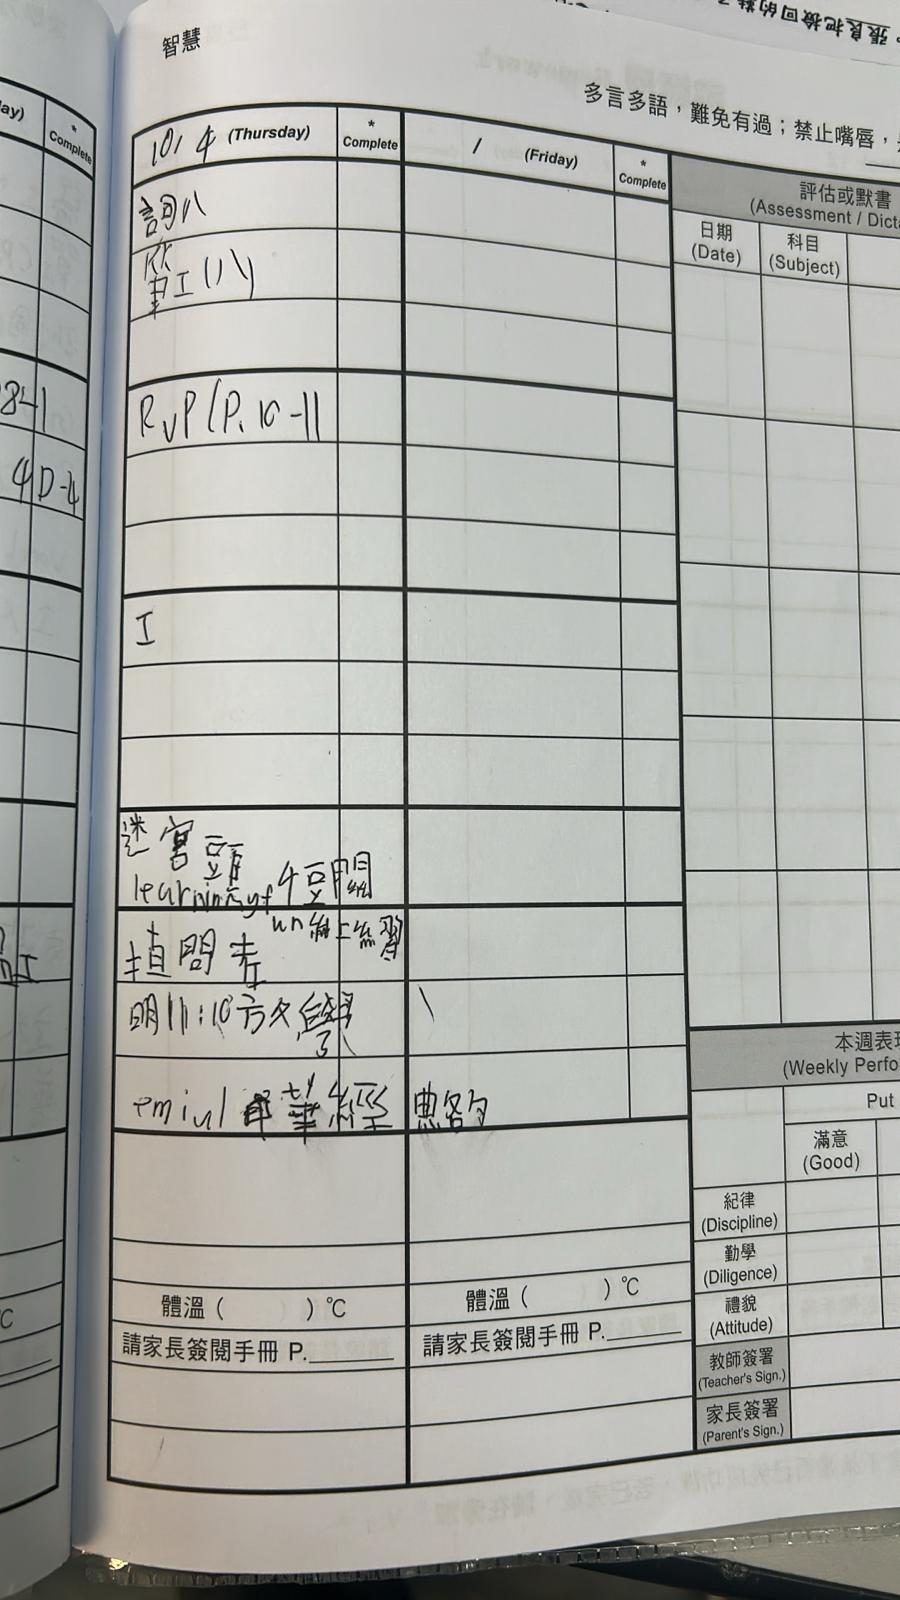 智慧
多言多語，難免有過；禁止嘴唇，
10/4 (Thursday)
*
Complete
/ (Friday)
*
Complete
評估或默書
(Assessment /
日期
(Date)
科目
(Subject)
詞八
筆工(八)
RVP(P.10-11
工
迷宮
learning
線上練習
填問
明11:10方
中華經典名句
本週表
(Weekly
Put
滿意
(Good)
紀律
(Discipline)
勤學
(Diligence)
禮貌
(Attitude)
教師簽署
(Teacher's Sign.)
家長簽署
(Parent's Sign.)
體溫 ( ) ℃
體溫 ( ) ℃
請家長簽閱手冊 P.
請家長簽閱手冊 P.
ay)
*
Complete
8-1
4D-4
工
℃